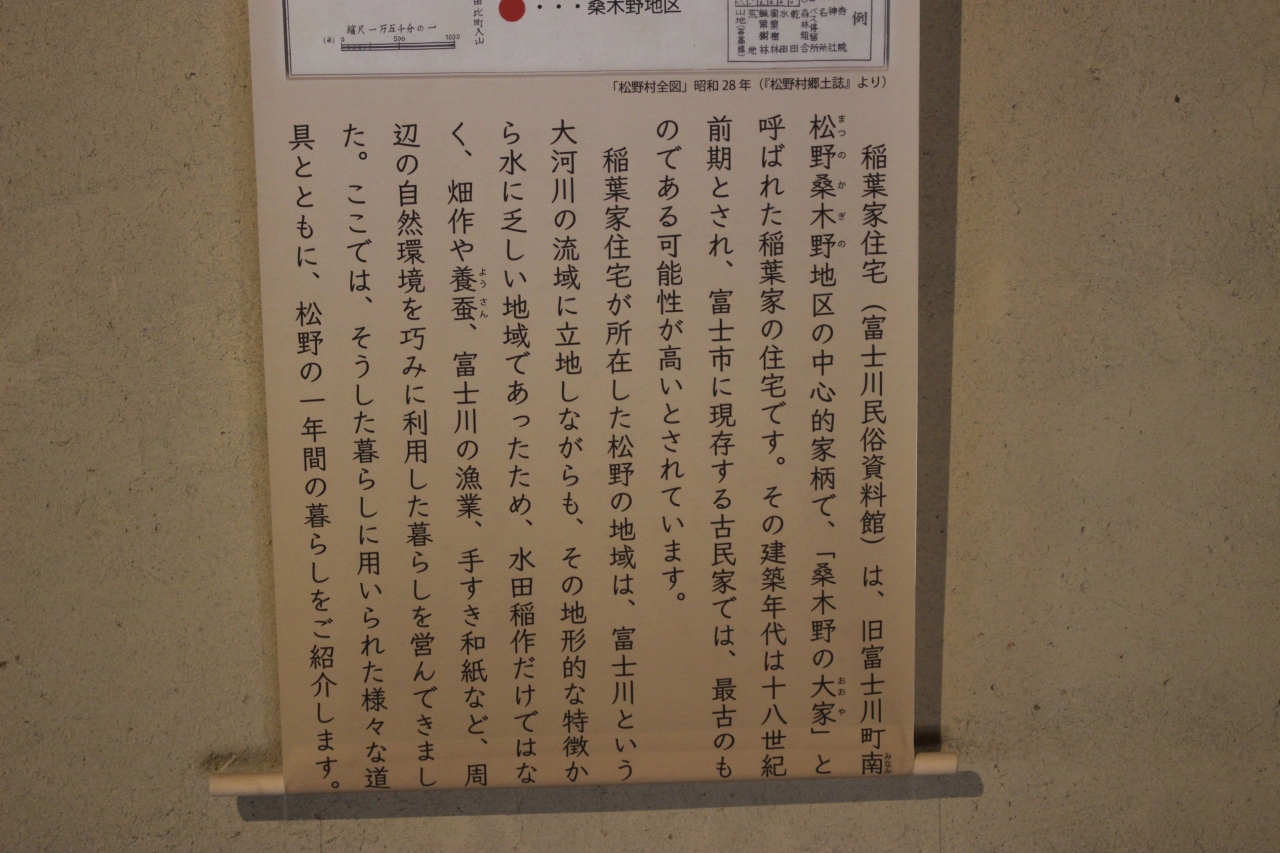 ●・・・桑木野地区
田比町入山
縮尺一万五千分の一
(米) 0 500 1000
例
「松野村全図」昭和28年(『松野村郷土誌』より)
稲葉家住宅(富士川民俗資料館)は、旧富士川町南
松野桑木野地区の中心的家柄で、「桑木野の大家」と
呼ばれた稲葉家の住宅です。その建築年代は十八世紀
前期とされ、富士市に現存する古民家では、最古のも
のである可能性が高いとされています。
稲葉家住宅が所在した松野の地域は、富士川という
大河川の流域に立地しながらも、その地形的な特徴か
ら水に乏しい地域であったため、水田稲作だけではな
く、畑作や養蚕、富士川の漁業、手すき和紙など、周
辺の自然環境を巧みに利用した暮らしを営んできまし
た。ここでは、そうした暮らしに用いられた様々な道
具とともに、松野の一年間の暮らしをご紹介します。